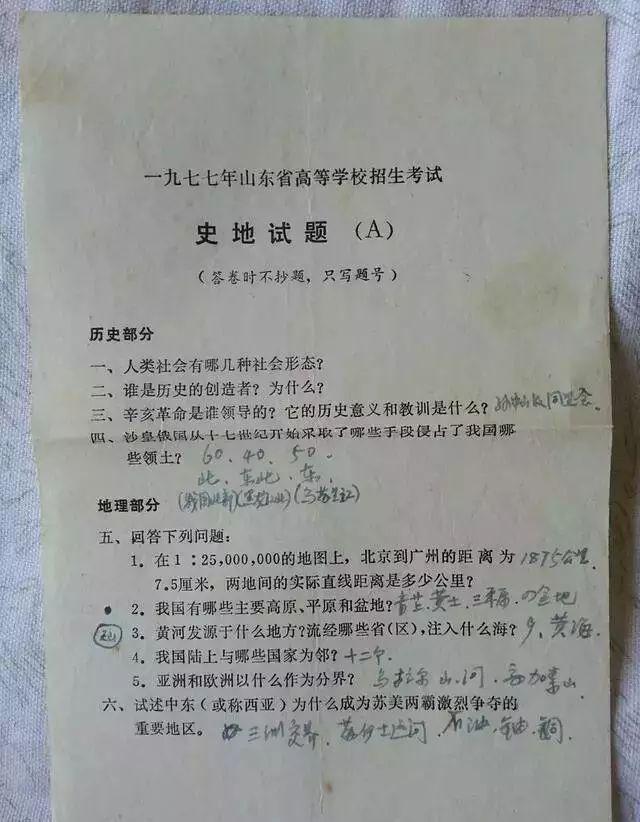 一九七七年山东省高等学校招生考试
史地试题（A）
（答卷时不抄题，只写题号）
历史部分
一、人类社会有哪几种社会形态？
二、谁是历史的创造者？为什么？
三、辛亥革命是谁领导的？它的历史意义和教训是什么？ 同盟会
四、沙皇俄国从十七世纪开始采取了哪些手段侵占了我国哪
些领土？ 60、40、50、
此、东北、东、
地理部分
五、回答下列问题：
1．在1：25,000,000的地图上，北京到广州的距离为 1875公里
7.5厘米，两地间的实际直线距离是多少公里？
2．我国有哪些主要高原、平原和盆地？ 黄土、三平原、四盆地
3．黄河发源于什么地方？流经哪些省（区），注入什么海？ 9、黄海
4．我国陆上与哪些国家为邻？ 十二个
5．亚洲和欧洲以什么作为分界？ 乌拉尔山、河、高加索山
六、试述中东（或称西亚）为什么成为苏美两霸激烈争夺的
重要地区。 三洲交界、苏伊士运河、石油、铀、铜